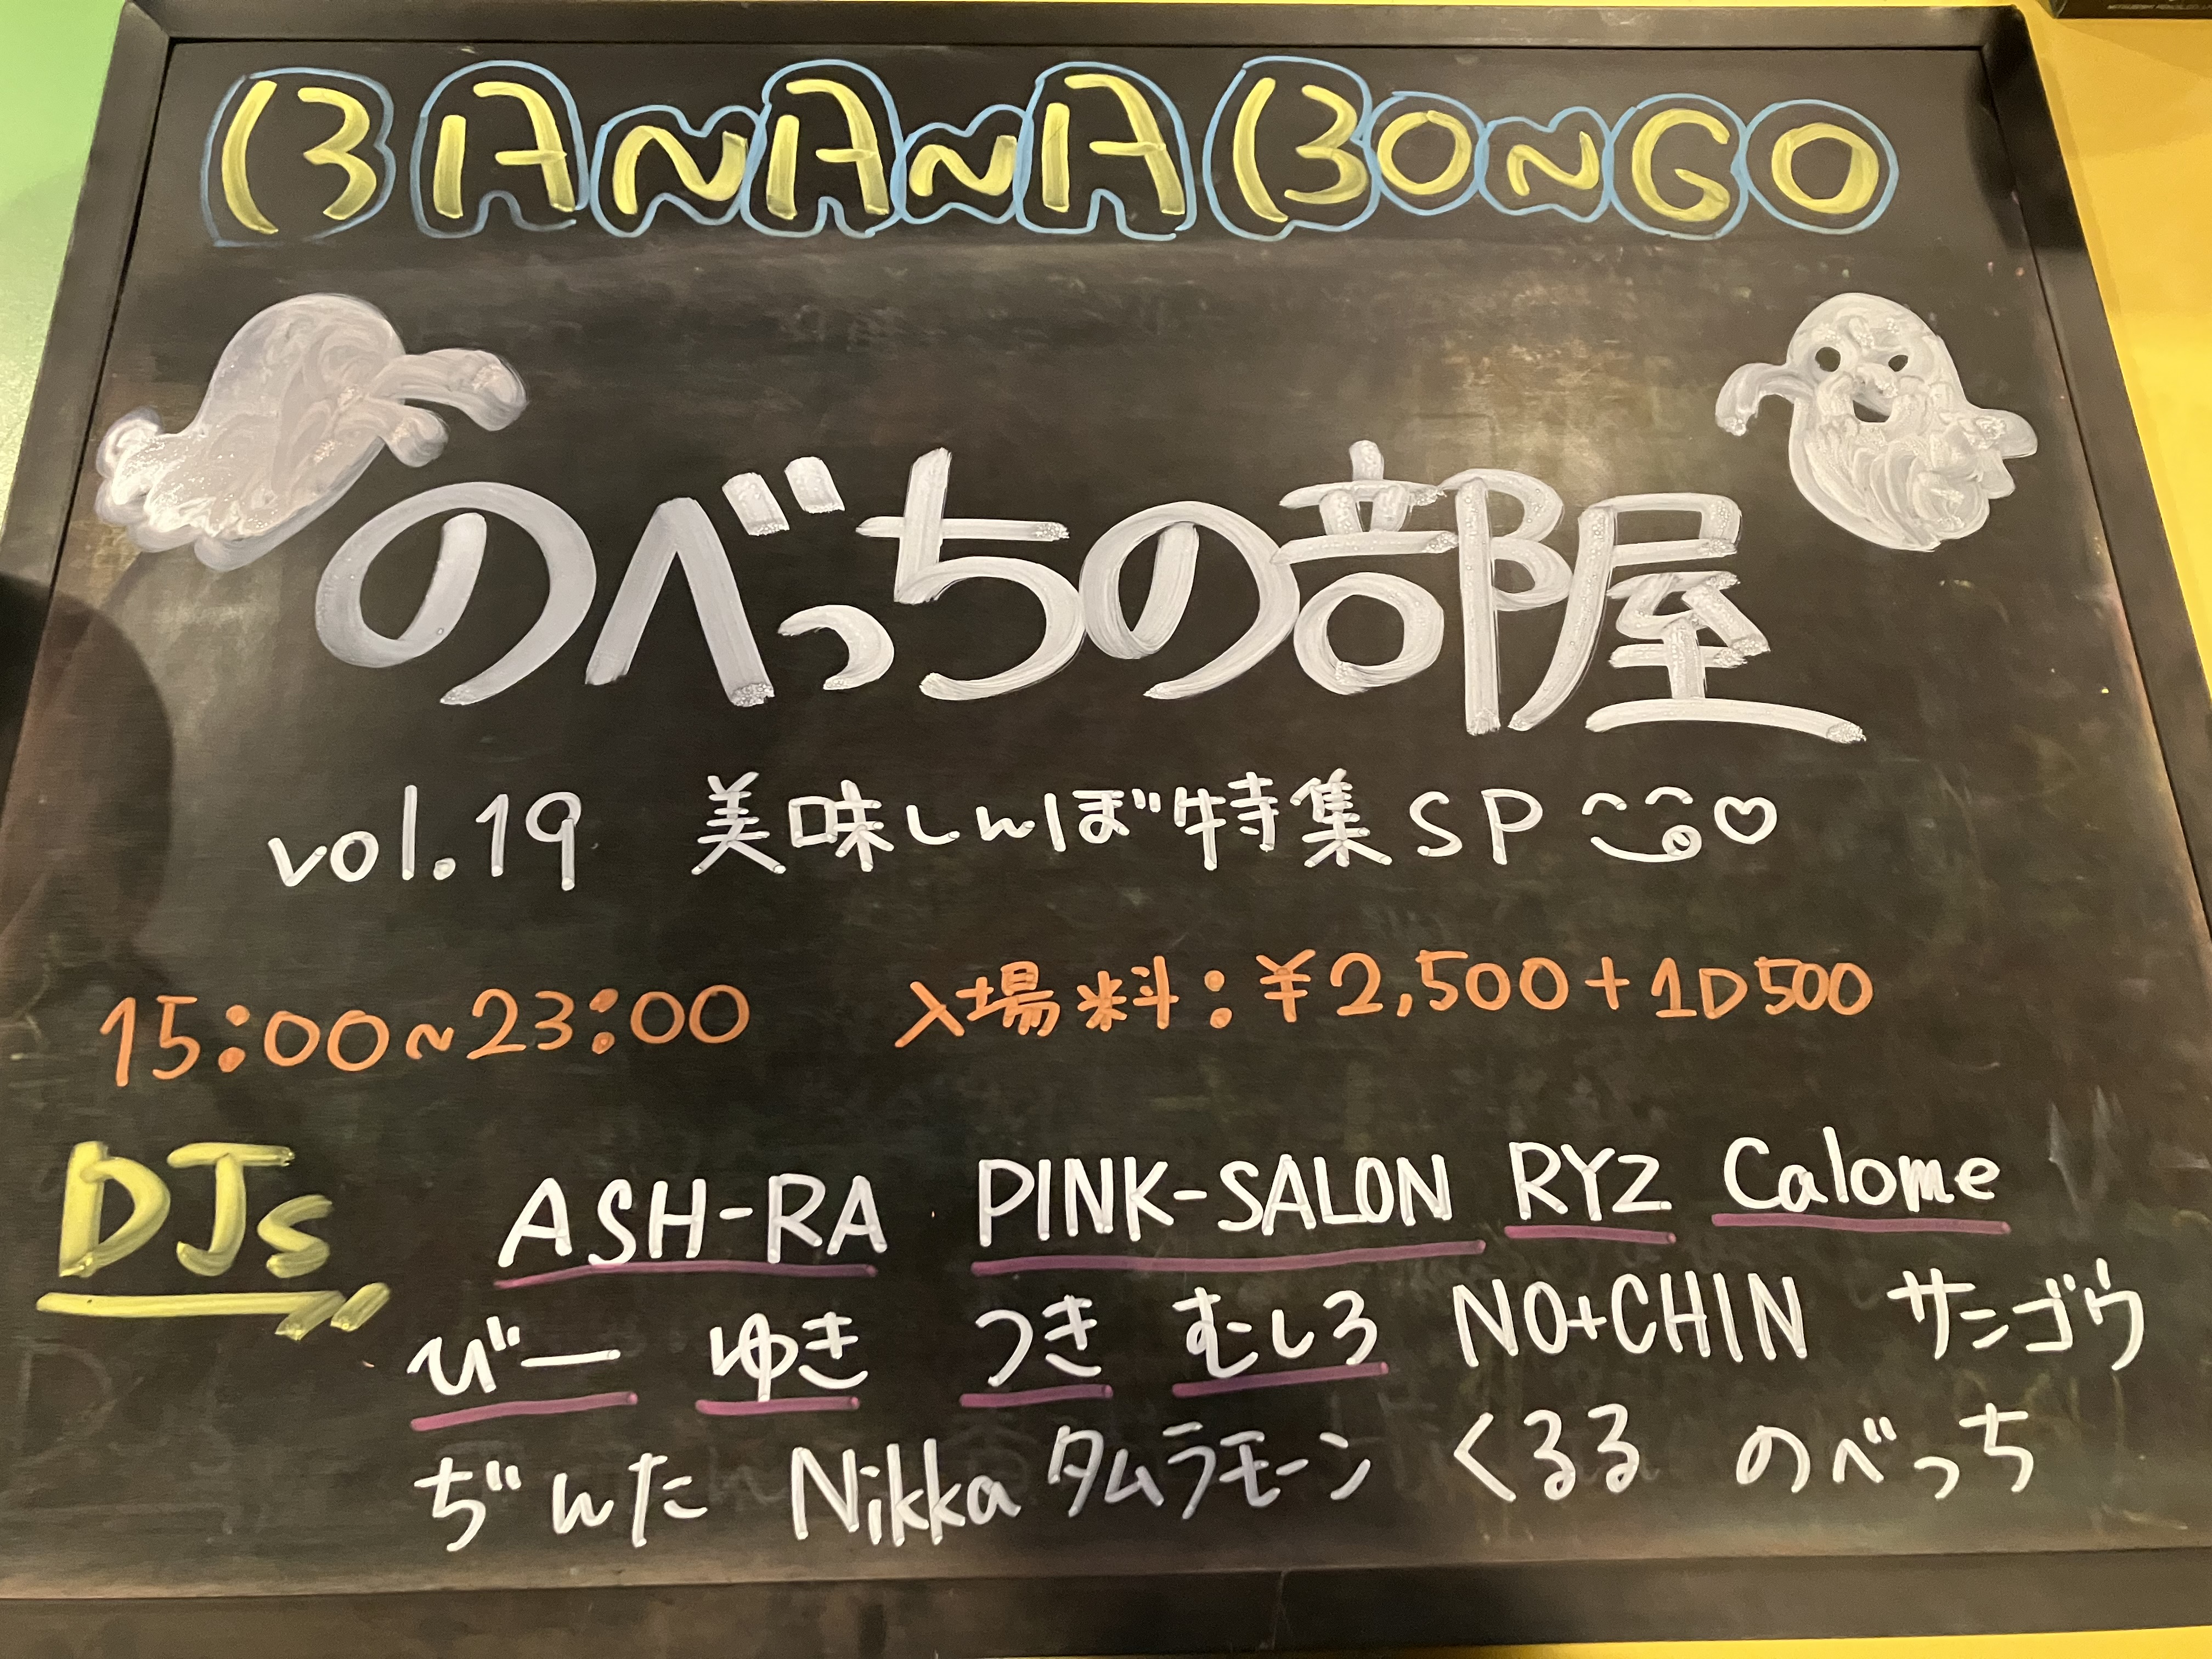 BANANA BONGO
のべっちの部屋
vol.19 美味しんぼ特集SP
15:00~23:00 入場料:¥2,500+1D500
DJs ASH-RA PINK-SALON RYZ Calome
びー ゆき つき むしろ NO+CHIN サンゴウ
ぢんた Nikka タムラモーン くるる のべっち